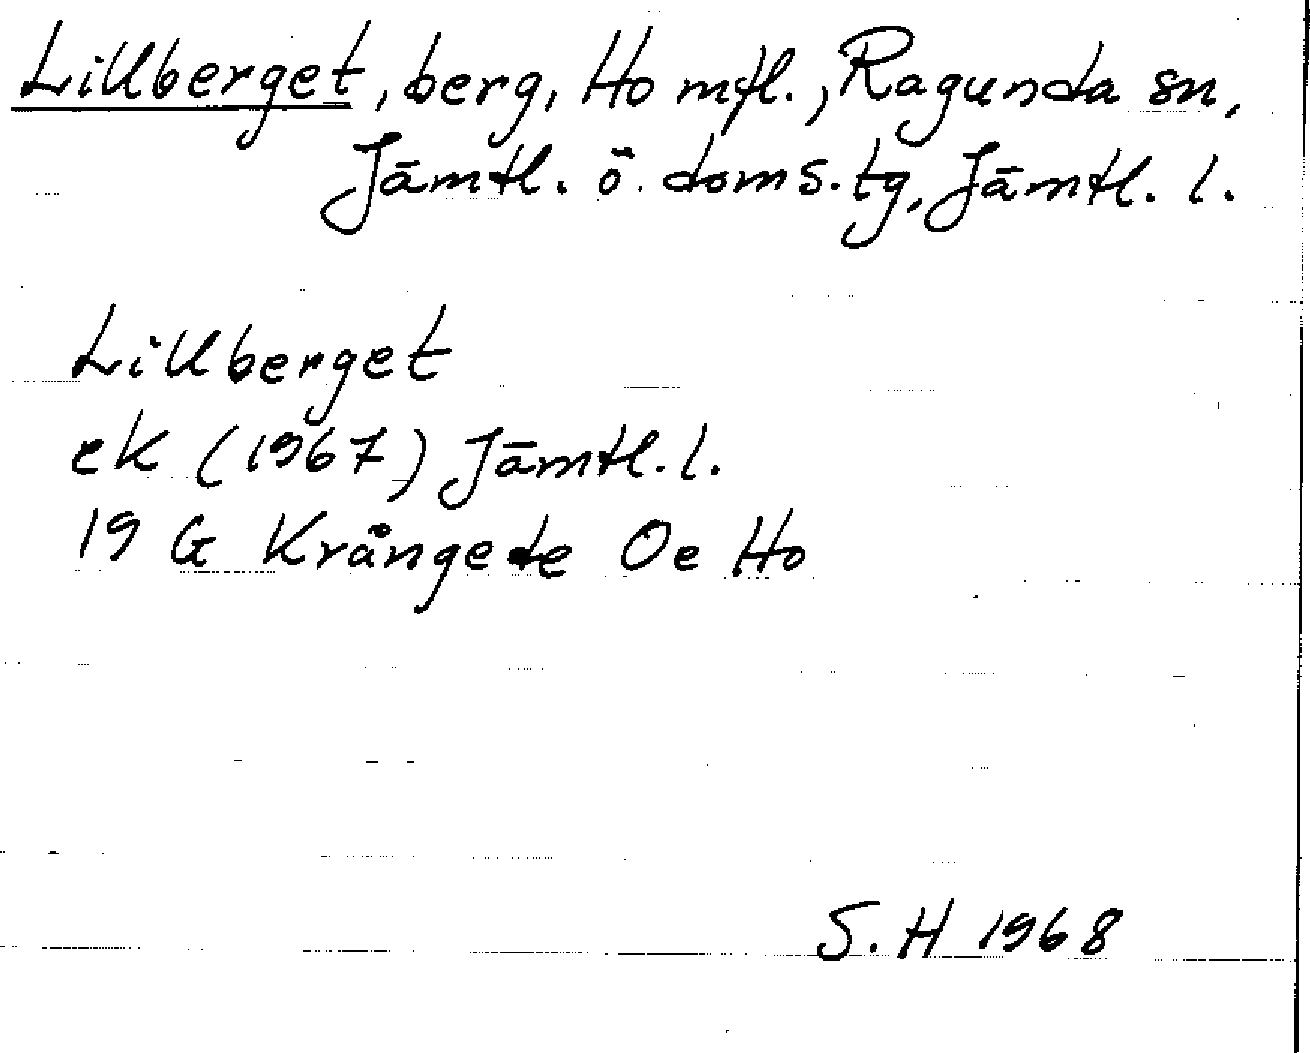 Lillberget, berg, Ho mfl., Ragunda sn,
Jämtl. ö. doms. tg, Jämtl. l.
Lillberget
ek (1967) Jämtl. l.
19 G Krångede Oe Ho
S. H 1968